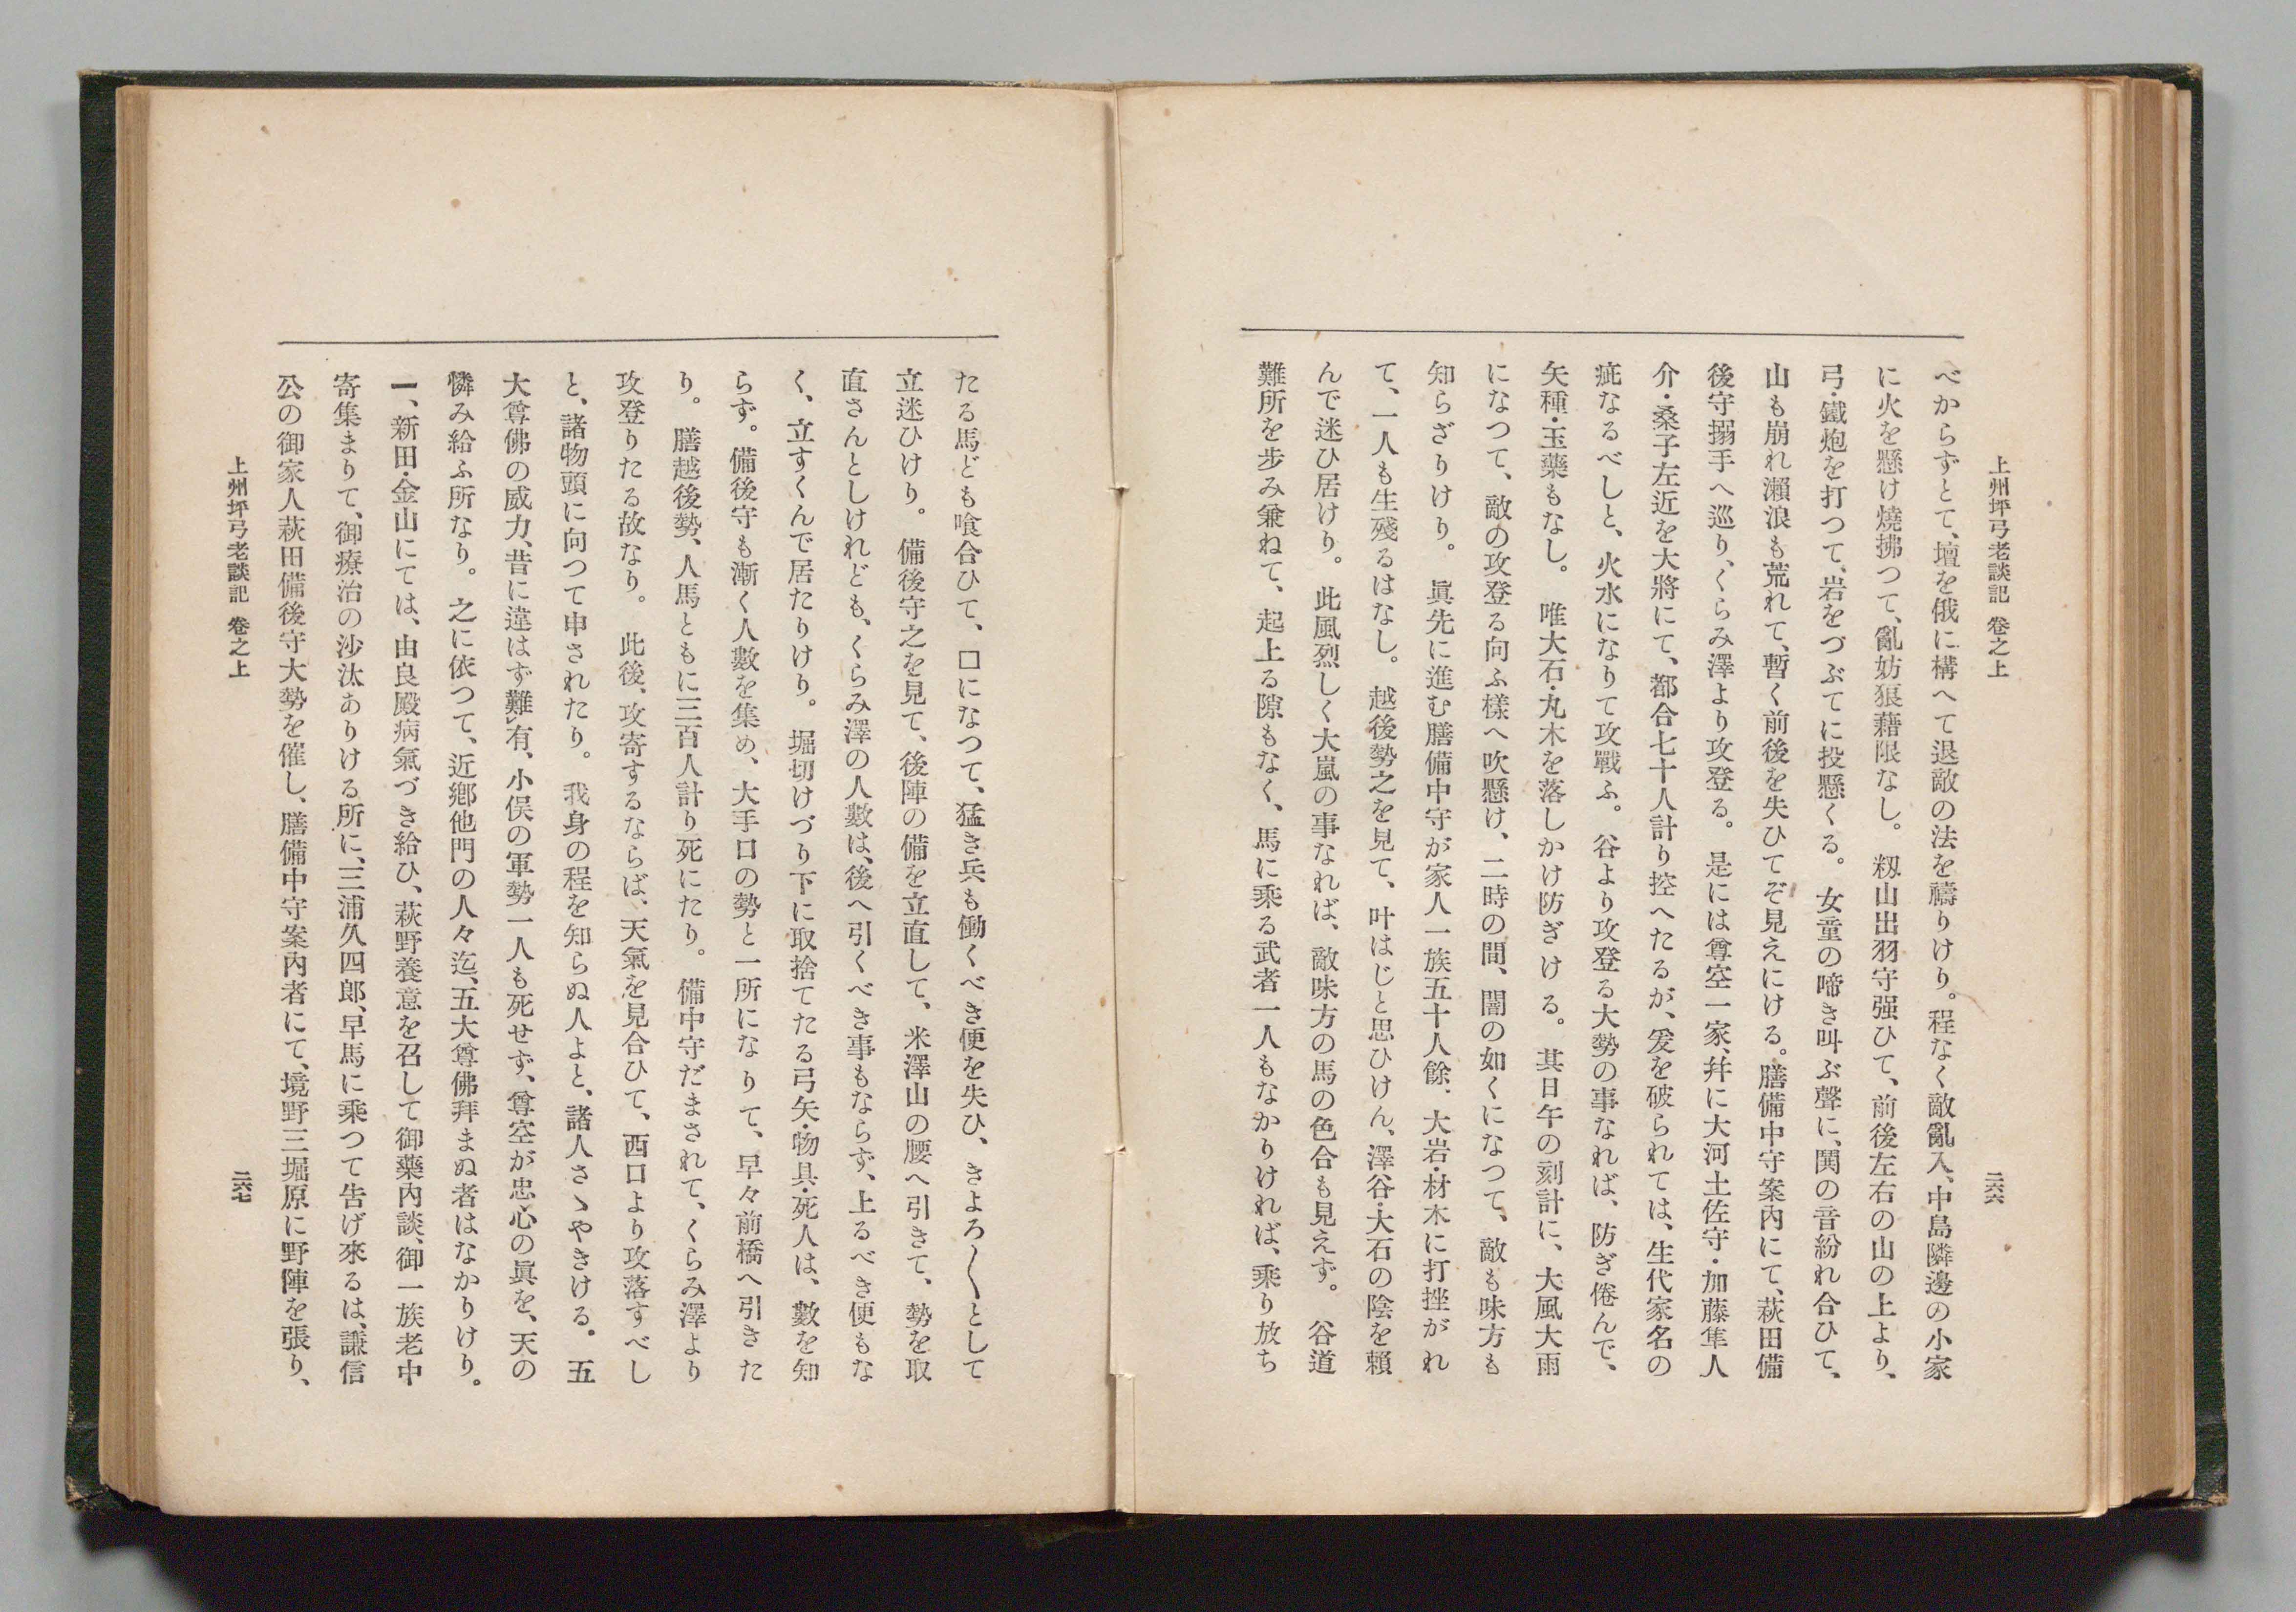 上州坪弓老談記　卷之上
二六六
べからずとて、壇を俄に構へて退敵の法を禱りけり。程なく敵亂入、中島隣邊の小家
に火を懸け燒拂つて、亂妨狼藉限なし。籾山出羽守强ひて、前後左右の山の上より、
弓・鐵炮を打つて、岩をつぶてに投懸くる。女童の啼き叫ぶ聲に、鬨の音紛れ合ひて、
山も崩れ瀨浪も荒れて、暫く前後を失ひてぞ見えにける。膳備中守案內にて、萩田備
後守搦手へ巡り、くらみ澤より攻登る。是には尊空一家、幷に大河土佐守・加藤隼人
介・桑子左近を大將にて、都合七十人計り控へたるが、爰を破られては、生代家名の
疵なるべしと、火水になりて攻戰ふ。谷より攻登る大勢の事なれば、防ぎ倦んで、
矢種・玉藥もなし。唯大石・丸木を落しかけ防ぎける。其日午の刻計に、大風大雨
になつて、敵の攻登る向ふ樣へ吹懸け、二時の間、闇の如くになつて、敵も味方も
知らざりけり。眞先に進む膳備中守が家人一族五十人餘、大岩・材木に打挫がれ
て、一人も生殘るはなし。越後勢之を見て、叶はじと思ひけん、澤谷・大石の陰を賴
んで迷ひ居けり。此風烈しく大嵐の事なれば、敵味方の馬の色合も見えず。谷道
難所を步み兼ねて、起上る隙もなく、馬に乘る武者一人もなかりければ、乘り放ち
たる馬ども喰合ひて、口になつて、猛き兵も働くべき便を失ひ、きよろ〱として
立迷ひけり。備後守之を見て、後陣の備を立直して、米澤山の腰へ引きて、勢を取
直さんとしけれども、くらみ澤の人數は、後へ引くべき事もならず、上るべき便もな
く、立すくんで居たりけり。堀切けづり下に取捨てたる弓矢・物具・死人は、數を知
らず。備後守も漸く人數を集め、大手口の勢と一所になりて、早々前橋へ引きた
り。膳越後勢、人馬ともに三百人計り死にたり。備中守だまされて、くらみ澤より
攻登りたる故なり。此後、攻寄するならば、天氣を見合ひて、西口より攻落すべし
と、諸物頭に向つて申されたり。我身の程を知らぬ人よと、諸人さゝやきける。五
大尊佛の威力、昔に違はず難㆑有、小俣の軍勢一人も死せず、尊空が忠心の眞を、天の
憐み給ふ所なり。之に依つて、近鄕他門の人々迄、五大尊佛拜まぬ者はなかりけり。
一、新田・金山にては、由良殿病氣づき給ひ、萩野養意を召して御藥內談、御一族老中
寄集まりて、御療治の沙汰ありける所に、三浦久四郞、早馬に乘つて告げ來るは、謙信
公の御家人萩田備後守大勢を催し、膳備中守案內者にて、境野三堀原に野陣を張り、
上州坪弓老談記　卷之上
二六七